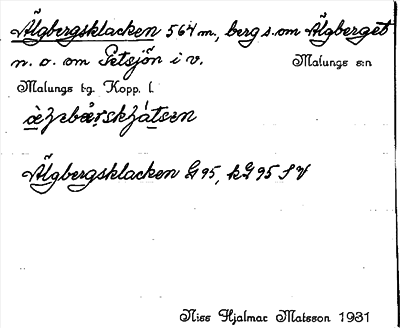 Älgbergsklacken 564 m., berg s. om Älgberget
n. o. om Petsjön i v. Malungs s:n
Malungs tg. Kopp. l.
Älgbergsklacken G 95, kG 95 S V
Nils Hjalmar Matsson 1931